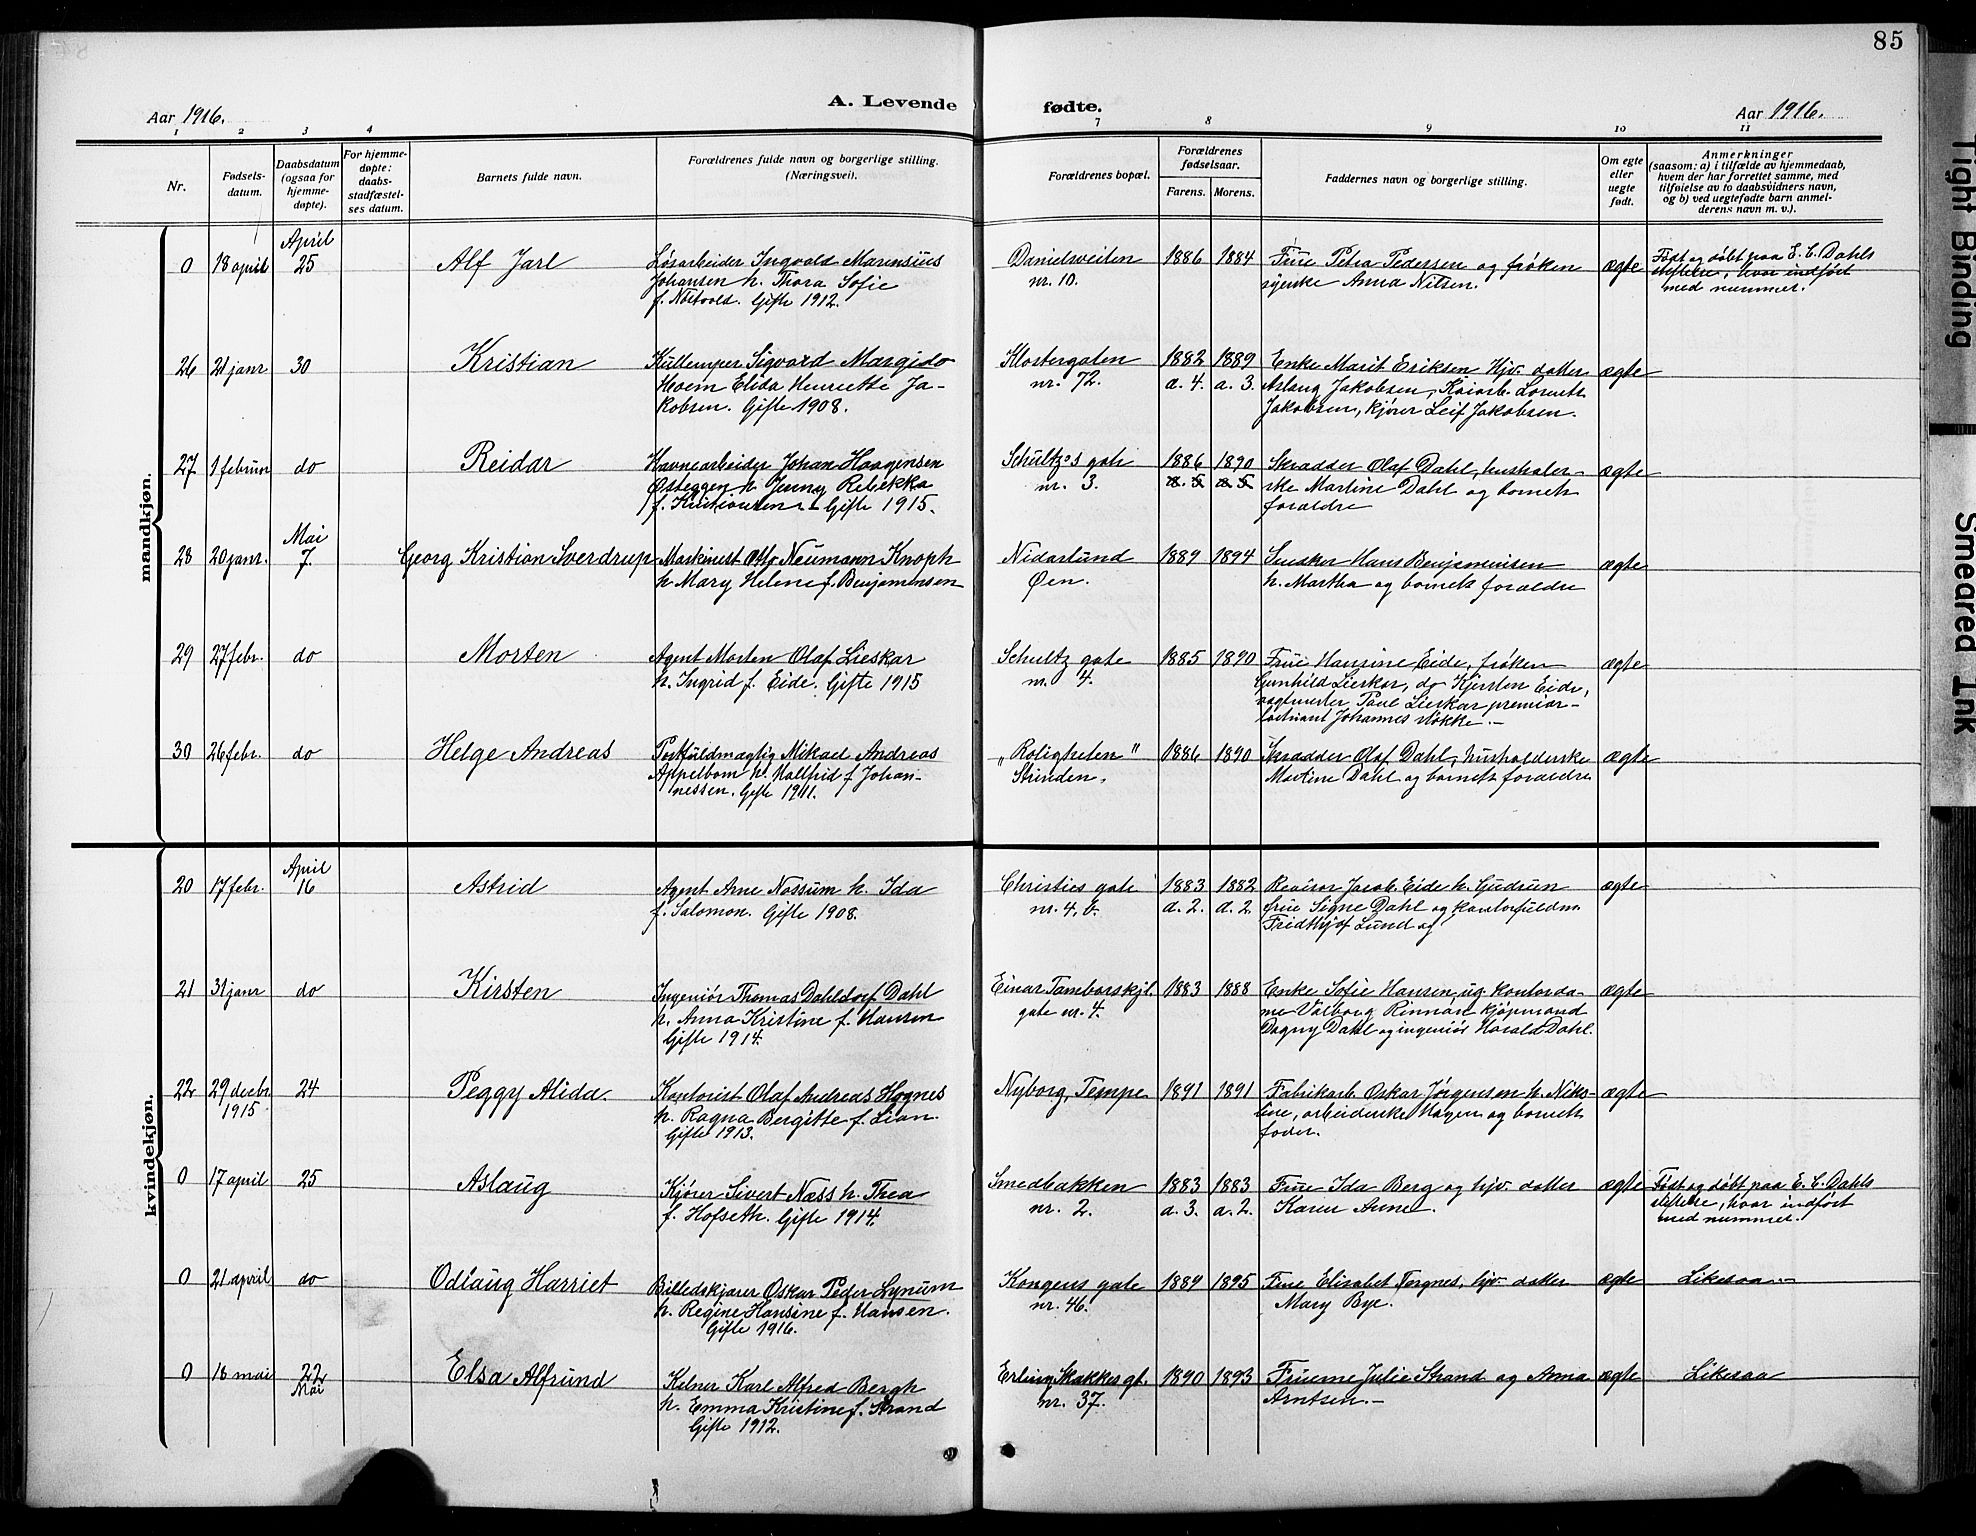 85
A. Levende fødte.
Aar 1916.
Aar 1916.
1 2 3 4 7 8 9 10 11
Nr.
Fødsels-
datum.
Daabsdatum
(ogsaa for
hjemme-
døpte).
For hjemme-
døpte:
daabs-
stadfæstel-
ses datum.
Barnets fulde navn.
Forældrenes fulde navn og borgerlige stilling.
(Næringsvei).
Forældrenes bopæl.
Forældrenes
fødselsaar.
Farens. Morens.
Faddernes navn og borgerlige stilling.
Om egte
eller
uegte
født.
Anmerkninger
(saasom: a) i tilfælde av hjemmedaab,
hvem der har forrettet samme, med
tilføielse av to daabsvidners navn,
og b) ved uegtefødte barn anmel-
derens navn m. v.).
mandkjøn.
0 18 april April 25 Alf Jarl
Løsarbeider Ingvald Marensius
Johansen h. Thora Sofie
Gifte 1912.
Danielsveiten
nr. 10.
1886 1884
Frue Petra Pedersen og frøken
syerske Anna Nilsen.
ægte
Født og døbt paa E. C. Dahls
stiftelse, hvor indført
med nummer.
26 21 janr 30 Kristian
Sigvard Margido
Hoem Elida Henriette Ja-
kobsen. Gifte 1908.
Klostergaten
nr. 72.
1882 1889
a. 4. a. 3.
Enke Marit Eriksen Hjv. datter
Aslaug Jakobsen, Laurits
Jakobsen, kjører Leif Jakobsen.
ægte
27 1 februar do Reidar
Havnearbeider Johan Haagensen
Østeggen h. Jenny Rebekka
f. Kristiansen - Gifte 1915.
Schultz's gate
nr. 3.
1886 1890
Skrædder Olaf Dahl, hushaler-
ske Martine Dahl og barnets
forældre
ægte
28 20 janr. Mai 7. Georg Kristian Sverdrup
Maskinist Otto Neumann Knoph
h. Mary Helene f. Benjaminsen
Nidarlund
Øen.
1889 1894
Snekker Hans Benjaminsen
h. Martha og barnets forældre
ægte
29 27 febr. do Morten
Agent Morten Olaf Lieskar
h. Ingrid f. Eide. Gifte 1915
Schultz gate
nr. 4.
1885 1890
Frue Hansine Eide, frøken
Gunhild Lieskar, do Kjersten Eide,
vagtmester Paul Lieskar premier-
løitnant Johannes Løkke.-
ægte
30 26 febr. do Helge Andreas
Postfuldmægtig Mikael Andreas
Appelbom h. Hallfrid f. Johan-
nessen. Gifte 1911.
„Roligheten"
Strinden.
1886 1890
Skrædder Olaf Dahl, husholderske
Martine Dahl og barnets forældre
ægte
kvindekjøn.
20 17 febr. April 16 Astrid
Agent Arne Nossum h. Ida
f. Salomon. Gifte 1908.
Christies gate
nr. 4. b.
1883 1882
d. 2. d. 2
Revisor Jacob Eide h. Gudrun
frue Signe Dahl og kontorfuldm.
Fridthjof Lund og
ægte
21 31 janr do Kirsten
Ingeniør Thomas Dahldorf Dahl
h. Anna Kristine f. Hansen
Gifte 1914.
Einar Tambarskjl.
gate nr. 4.
1883 1888
Enke Sofie Hansen, ug. kontorda-
me Valborg Rinnan kjøpmand
Dagny Dahl og ingeniør Harald Dahl.
ægte
22 29 decbr 1915 24 Peggy Alida.
Kontorist Olaf Andreas Hognes
h. Ragna Bergitte f. Lian.
Gifte 1913.
Nyborg, Tempe
1891 1891
Fabrikarb. Oskar Jørgensen h. Niko-
line, arbeiderske Hagen og barnets
fader.
ægte
0 17 april 25 Aslaug
Kjører Sivert Næss h. Thea
f. Hofseth. Gifte 1914.
Smedbakken
nr. 2.
1883 1883
a. 3. a. 2.
Frue Ida Berg og hjv. datter
Karen Anne.
ægte
Født og døbt paa E. C. Dahls
stiftelse, hvor indført
med nummer.
0 21 april do Odlaug Harriet
Billedskjærer Oskar Peder Lynum
h. Regine Hansine f. Hansen.
Gifte 1916.
Kongens gate
nr. 46.
1889 1895
Frue Elisabet Forgnes, hjv. datter
Mary Bye.
ægte
Likesaa.-
0 18 mai 22 Mai Elsa Alfrund
Kelner Karl Alfred Bergh
h. Emma Kristine f. Strand
Gifte 1912.
Erling Skakkes gt.
nr. 37.
1890 1893
Fruerne Julie Strand og Anna
Arntsen.-
ægte
Likesaa
Tight Binding
Smeared Ink